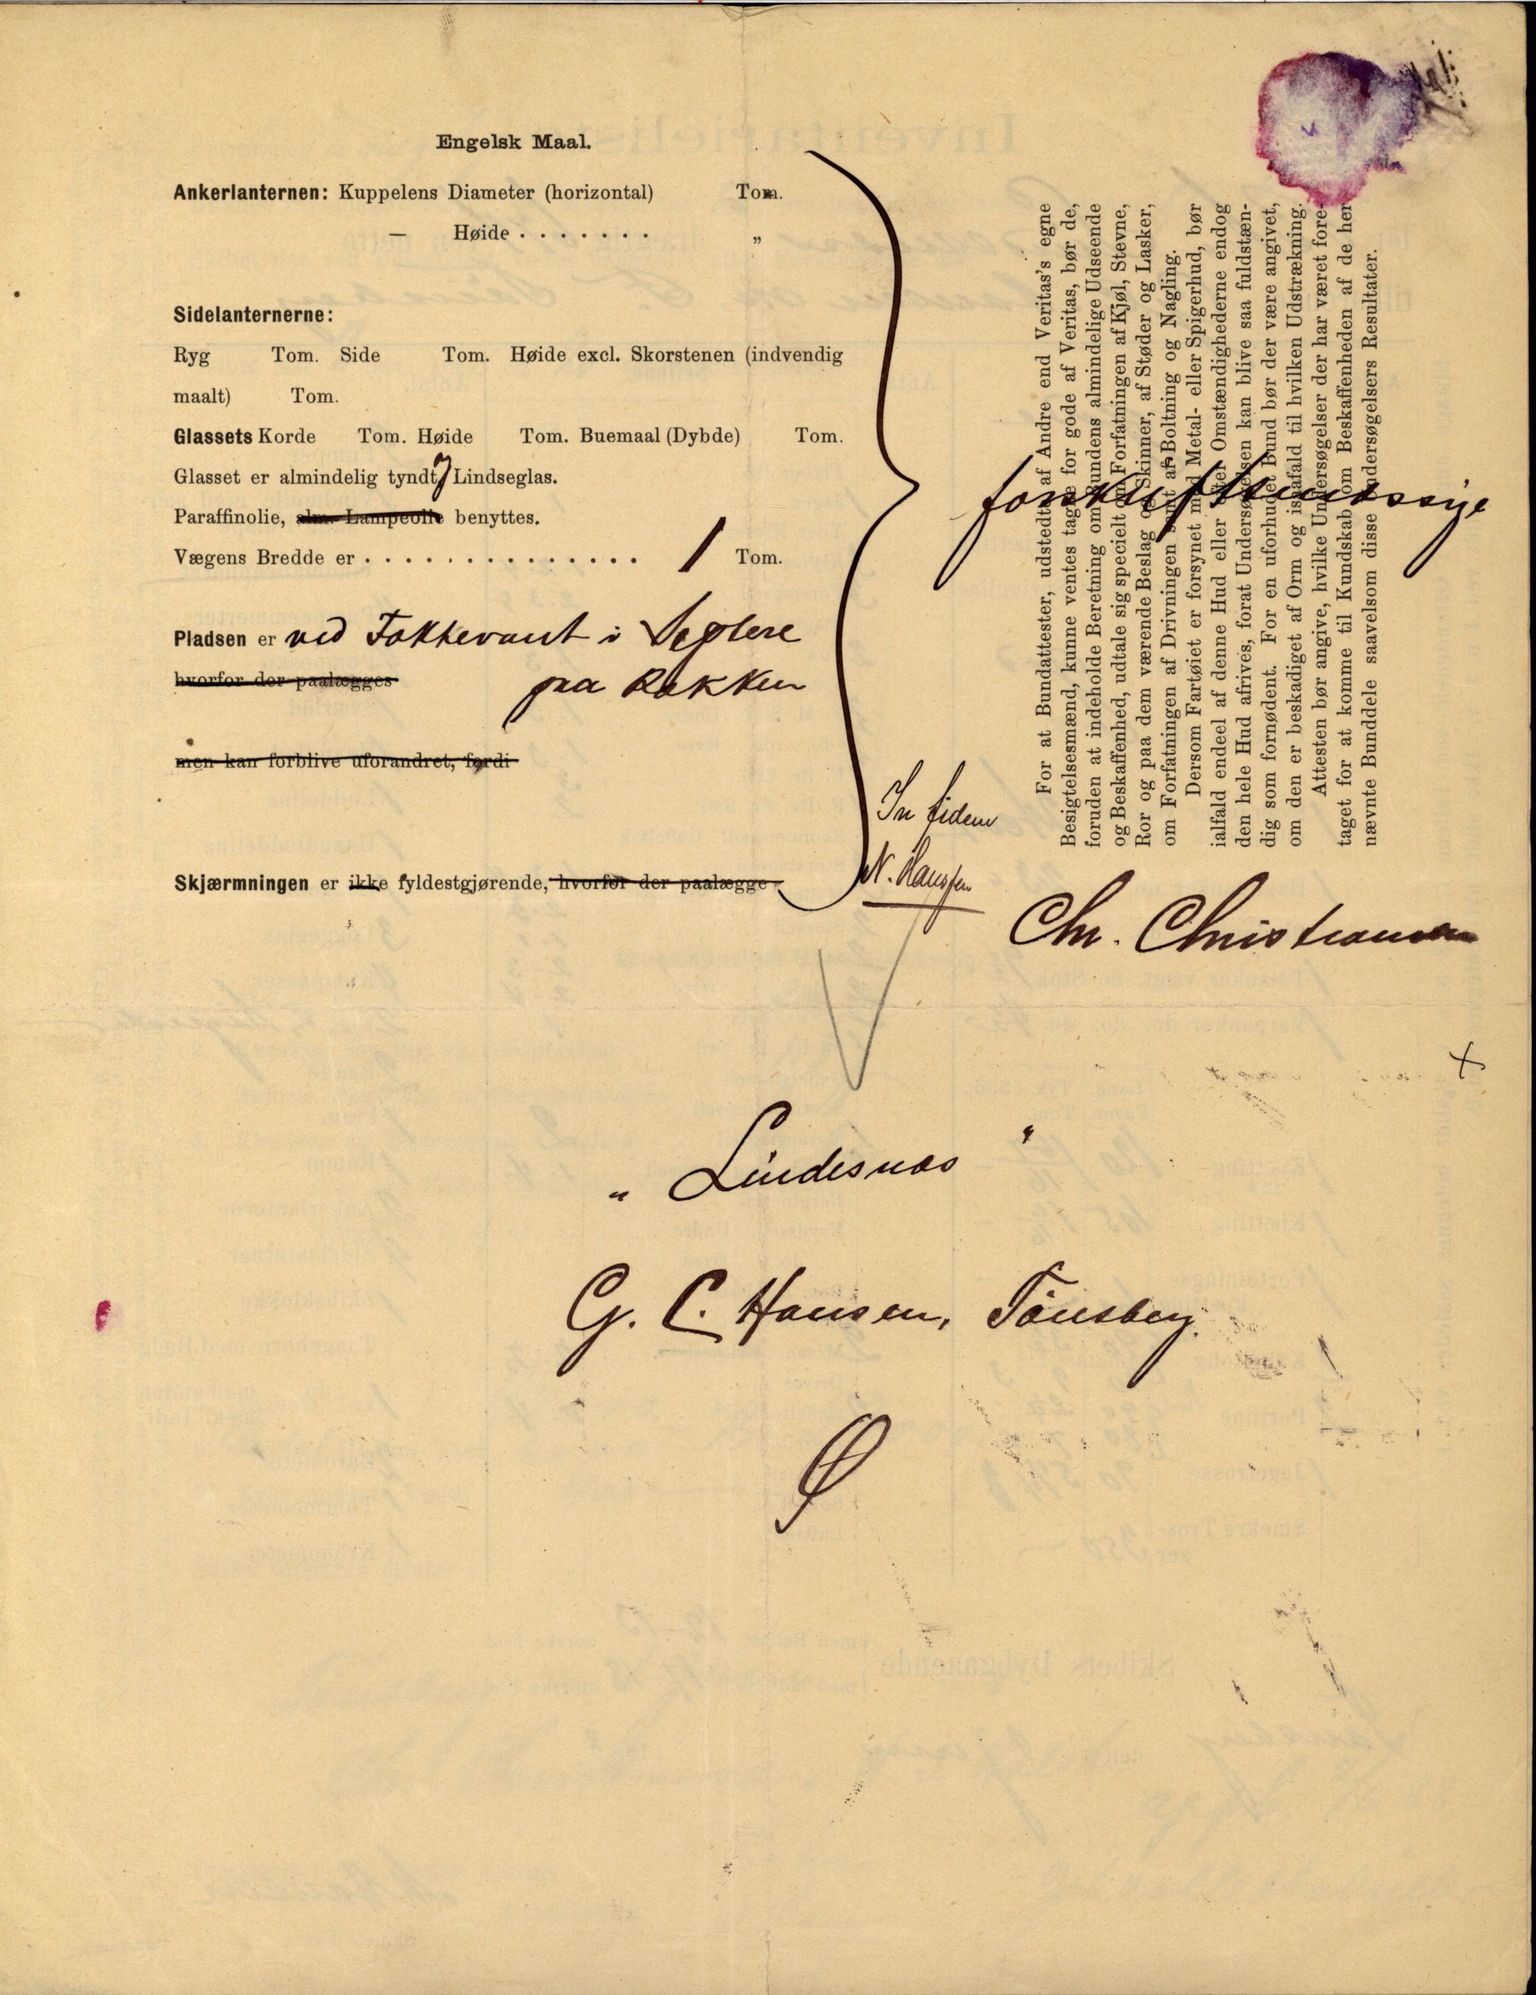 Engelsk Maal.
Ankerlanternen: Kuppelens Diameter (horizontal) Tom.
— Høide . . . . . . . „
Sidelanternerne:
Ryg Tom. Side Tom. Høide excl. Skorstenen (indvendig
maalt) Tom.
Glassets Korde Tom. Høide Tom. Buemaal (Dybde) Tom.
Glasset er almindelig tyndt, Lindseglas.
Paraffinolie, alm. Lampeolie benyttes.
Vægens Bredde er . . . . . . . . . . . . . . 1 Tom.
Pladsen er ved Fokkevant i
hvorfor der paalægges paa Rækken
men kan forblive uforandret, fordi
Skjærmningen er ikke fyldestgjørende, hvorfor der paalægge
forskriftsmæssige
In fidem
N. Hanssen
Chr. Christiansen
For at Bundattester, udstedte af Andre end Veritas's egne
Besigtelsesmænd, kunne ventes tagne for gode af Veritas, bør de,
foruden at indeholde Beretning om Bundens almindelige Udseende
og Beskaffenhed, udtale sig specielt om Forfatningen af Kjøl, Stevne,
Ror og paa dem værende Beslag og Skinner, af Støder og Lasker,
om Forfatningen af Drivningen samt af Boltning og Nagling.
Dersom Fartøiet er forsynet med Metal- eller Spigerhud, bør
ialfald endeel af denne Hud eller efter Omstændighederne endog
den hele Hud afrives, forat Undersøgelsen kan blive saa fuldstæn-
dig som fornødent. For en uforhudet Bund bør der være angivet,
om den er beskadiget af Orm og isaafald til hvilken Udstrækning.
Attesten bør angive, hvilke Undersøgelser der har været fore-
taget for at komme til Kundskab om Beskaffenheden af de her
nævnte Bunddele saavelsom disse Undersøgelsers Resultater.
„ Lindesnæs "
G. C. Hansen, Tönsberg.
Ø